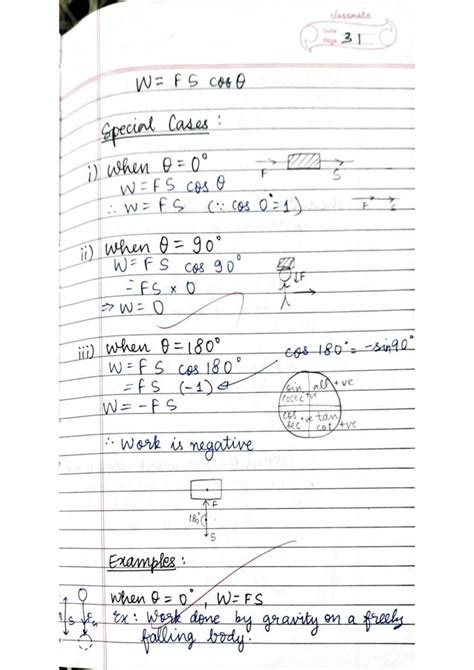 classmate
Date
Page 31
W = FS cosθ
Special Cases :
i) When θ = 0°
W = FS cos θ
∴ W = FS (∵ cos 0° = 1)
F S
F S
ii) When θ = 90°
W = FS cos 90°
= FS × 0
⇒ W = 0
F
iii) When θ = 180°
W = FS cos 180°
= FS (-1)
W = -FS
cos 180° = -sin90°
sin all +ve
cosec +ve
cos +ve tan
sec cot +ve
∴ Work is negative
F
180°
S
Examples :
When θ = 0°, W = FS
Ex : Work done by gravity on a freely
falling body.
S